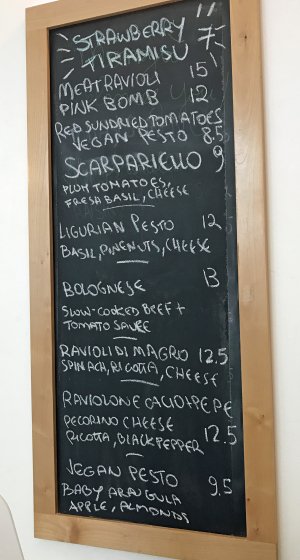 STRAWBERRY
TIRAMISU 7
MEAT RAVIOLI 15
PINK BOMB 12
RED SUNDRIED TOMATOES
VEGAN PESTO 8.5
SCARPARIELLO 9
PLUM TOMATOES,
FRESH BASIL, CHEESE
LIGURIAN PESTO 12
BASIL, PINENUTS, CHEESE
BOLOGNESE 13
SLOW-COOKED BEEF +
TOMATO SAUCE
RAVIOLI DI MAGRO 12.5
SPINACH, RICOTTA, CHEESE
RAVIOLONE CACIO E PEPE
PECORINO CHEESE
RICOTTA, BLACK PEPPER 12.5
VEGAN PESTO 9.5
BABY ARAGULA
APPLE, ALMONDS